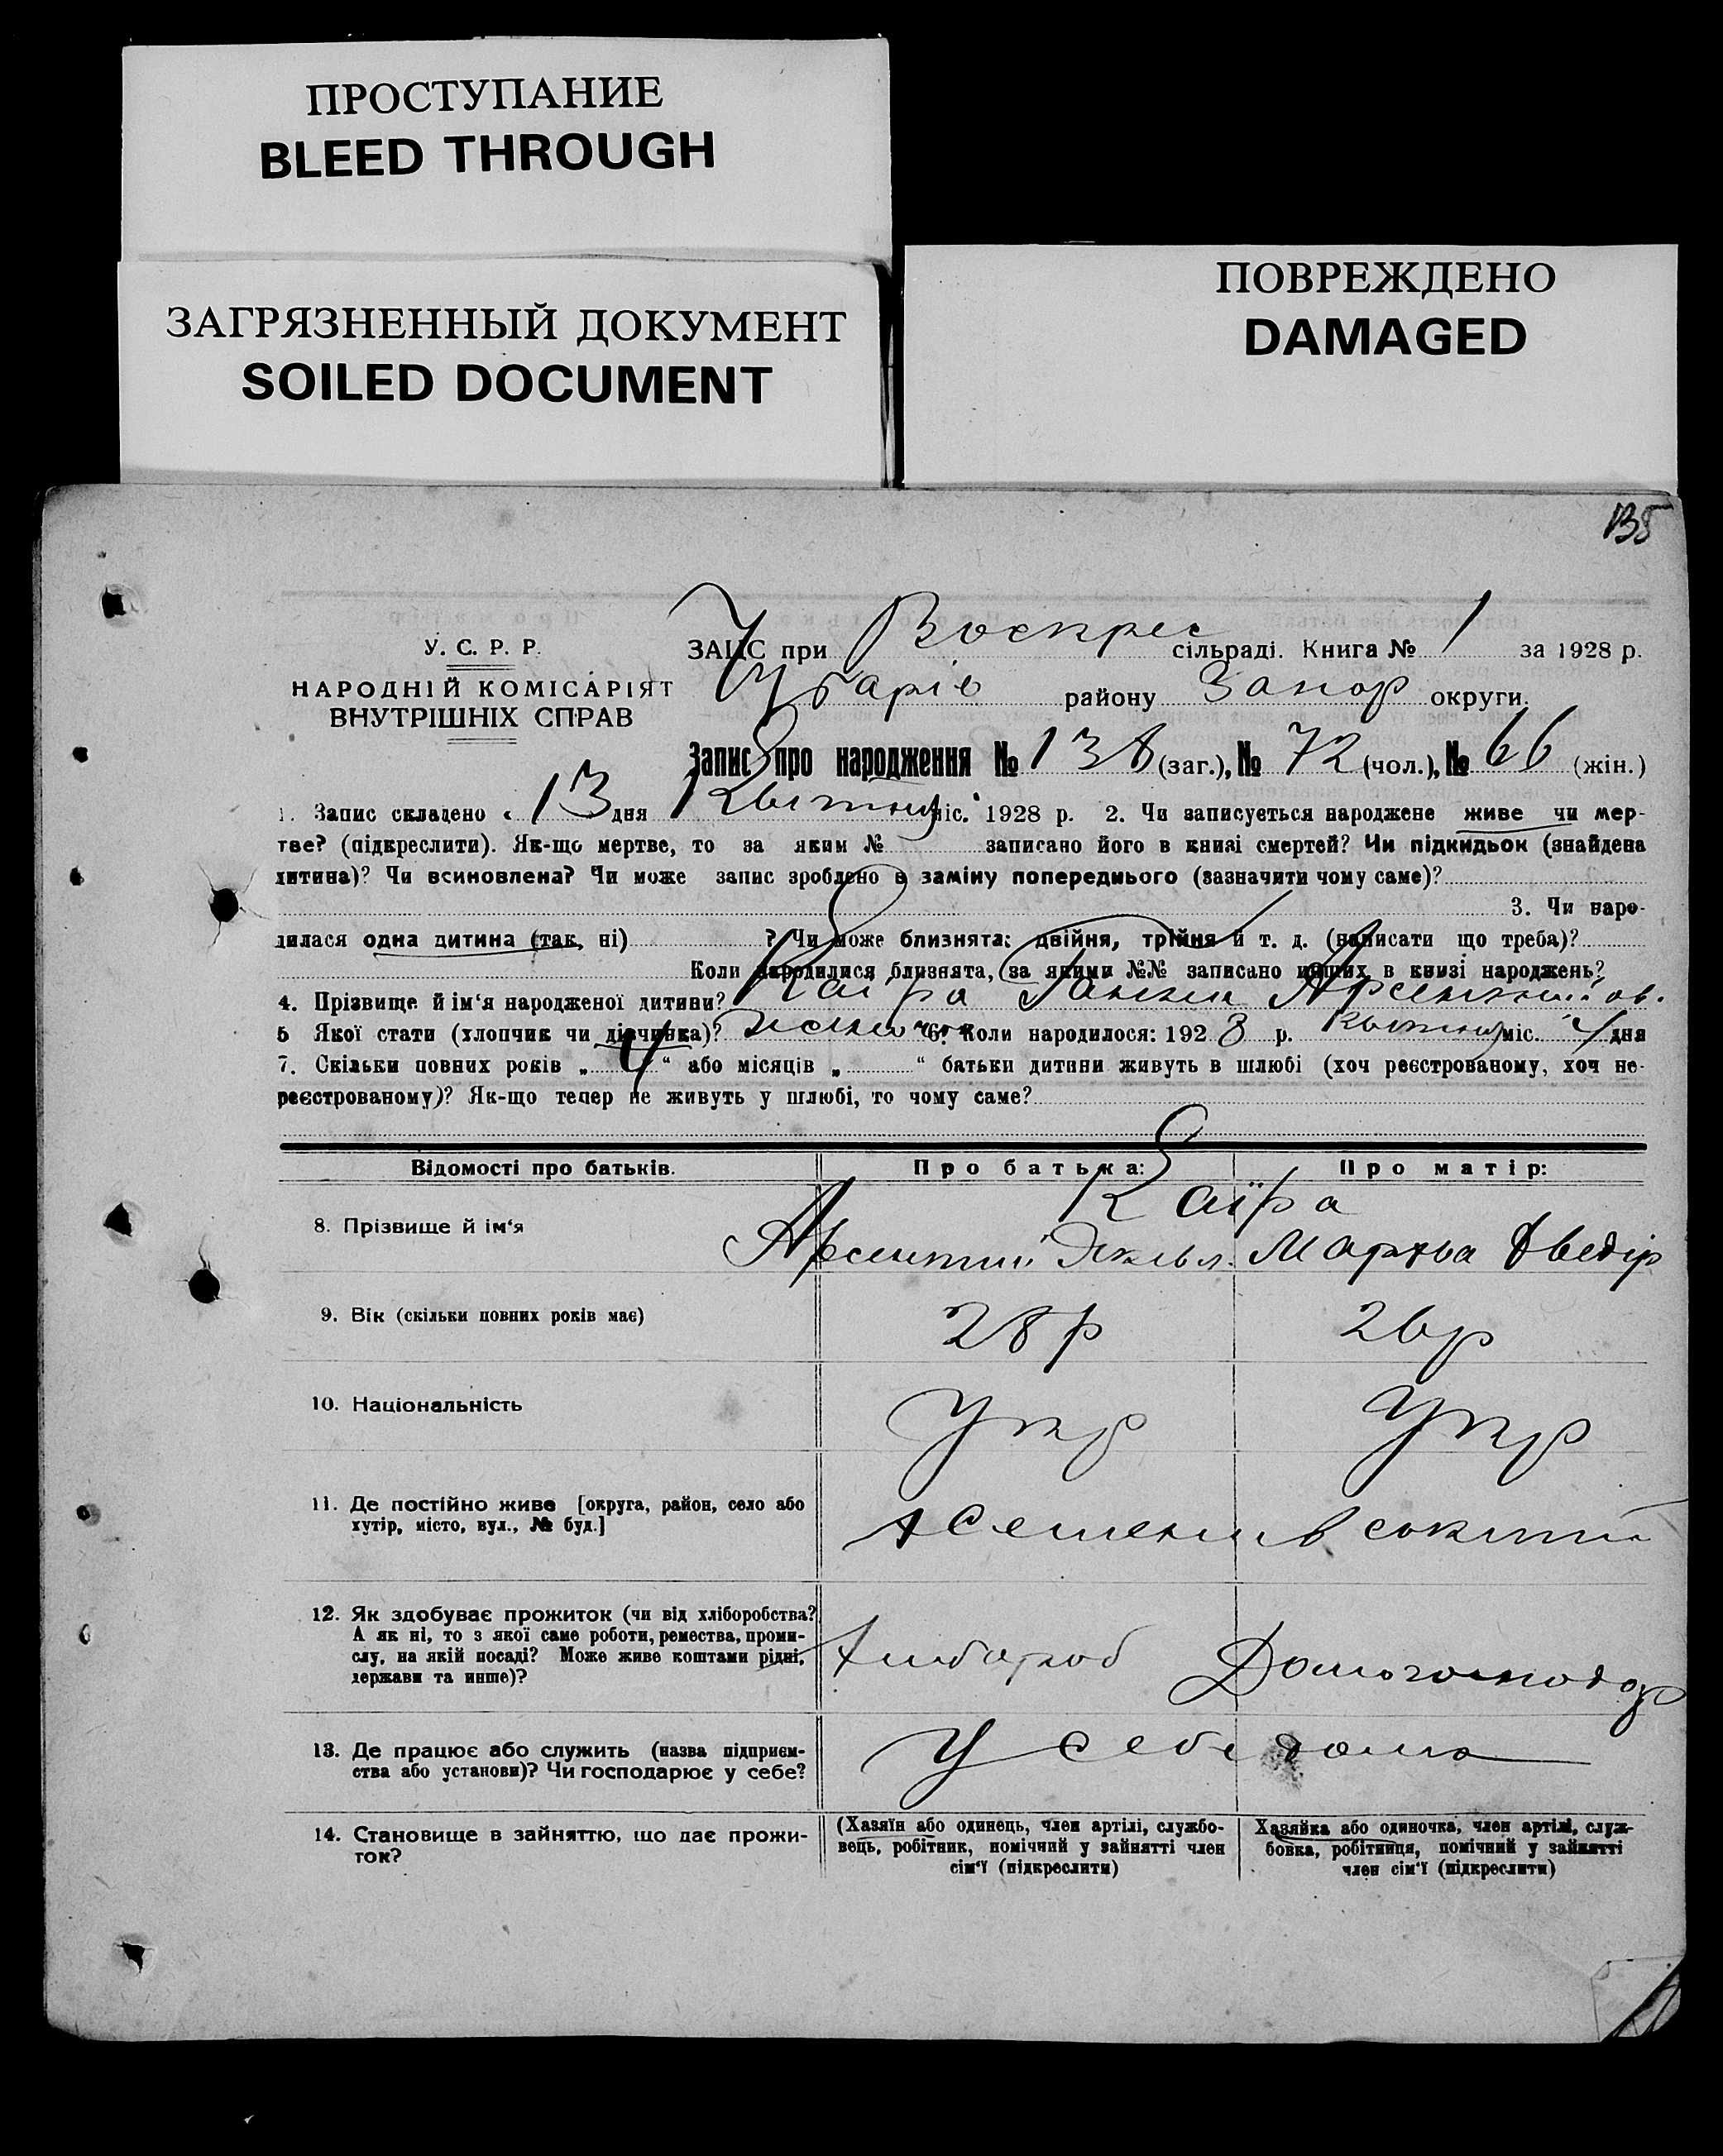 ПРОСТУПАНИЕ
BLEED THROUGH
ЗАГРЯЗНЕННЫЙ ДОКУМЕНТ
SOILED DOCUMENT
ПОВРЕЖДЕНО
DAMAGED
135
У. С. Р. Р.
НАРОДНІЙ КОМІСАРІЯТ
ВНУТРІШНІХ СПРАВ
ЗАЦС при Воскрес сільраді. Книга № 1 за 1928 р.
Чубарів району Запор округи.
Запис про народження № 138 (заг.), № 72 (чол.), № 66 (жін.)
1. Запис складено « 13 дня Квітня міс. 1928 р. 2. Чи записується народжене живе чи мер-
тве? (підкреслити). Як-що мертве, то за яким № записано його в книзі смертей? Чи підкидьок (знайдена
дитина)? Чи всиновлена? Чи може запис зроблено в заміну попереднього (зазначити чому саме)?
3. Чи наро-
дилася одна дитина (так, ні) ? Чи може близнята: двійня, трійня й т. д. (написати що треба)?
Коли народилися близнята, за якими №№ записано инших в книзі народжень?
4. Прізвище й ім'я народженої дитини? Каїра Ганна
5 Якої стати (хлопчик чи дівчинка)? 6. Коли народилося: 1928 р. Квітня міс. 4 дня
7. Скільки повних років „ 4 “ або місяців „ “ батьки дитини живуть в шлюбі (хоч реєстрованому, хоч не-
реєстрованому)? Як-що тепер не живуть у шлюбі, то чому саме?
Відомості про батьків. Про батька: Про матір:
Каїра
8. Прізвище й ім'я Арсентий Марфа
9. Вік (скільки повних років має) 28 р 26 р
10. Національність Укр Укр
11. Де постійно живе [округа, район, село або
хутір, місто, вул., № буд.]
12. Як здобуває прожиток (чи від хліборобства?
А як ні, то з якої саме роботи, ремества, проми-
слу, на якій посаді? Може живе коштами рідні,
держави та инше)?
хлібороб Домогосподар
13. Де працює або служить (назва підприєм-
ства або установи)? Чи господарює у себе?
У себе дома
14. Становище в зайняттю, що дає прожи-
ток?
(Хазяїн або одинець, член артілі, службо-
вець, робітник, помічний у зайнятті член
сім'ї (підкреслити)
Хазяйка або одиночка, член артілі, служ-
бовка, робітниця, помічний у зайнятті
член сім'ї (підкреслити)